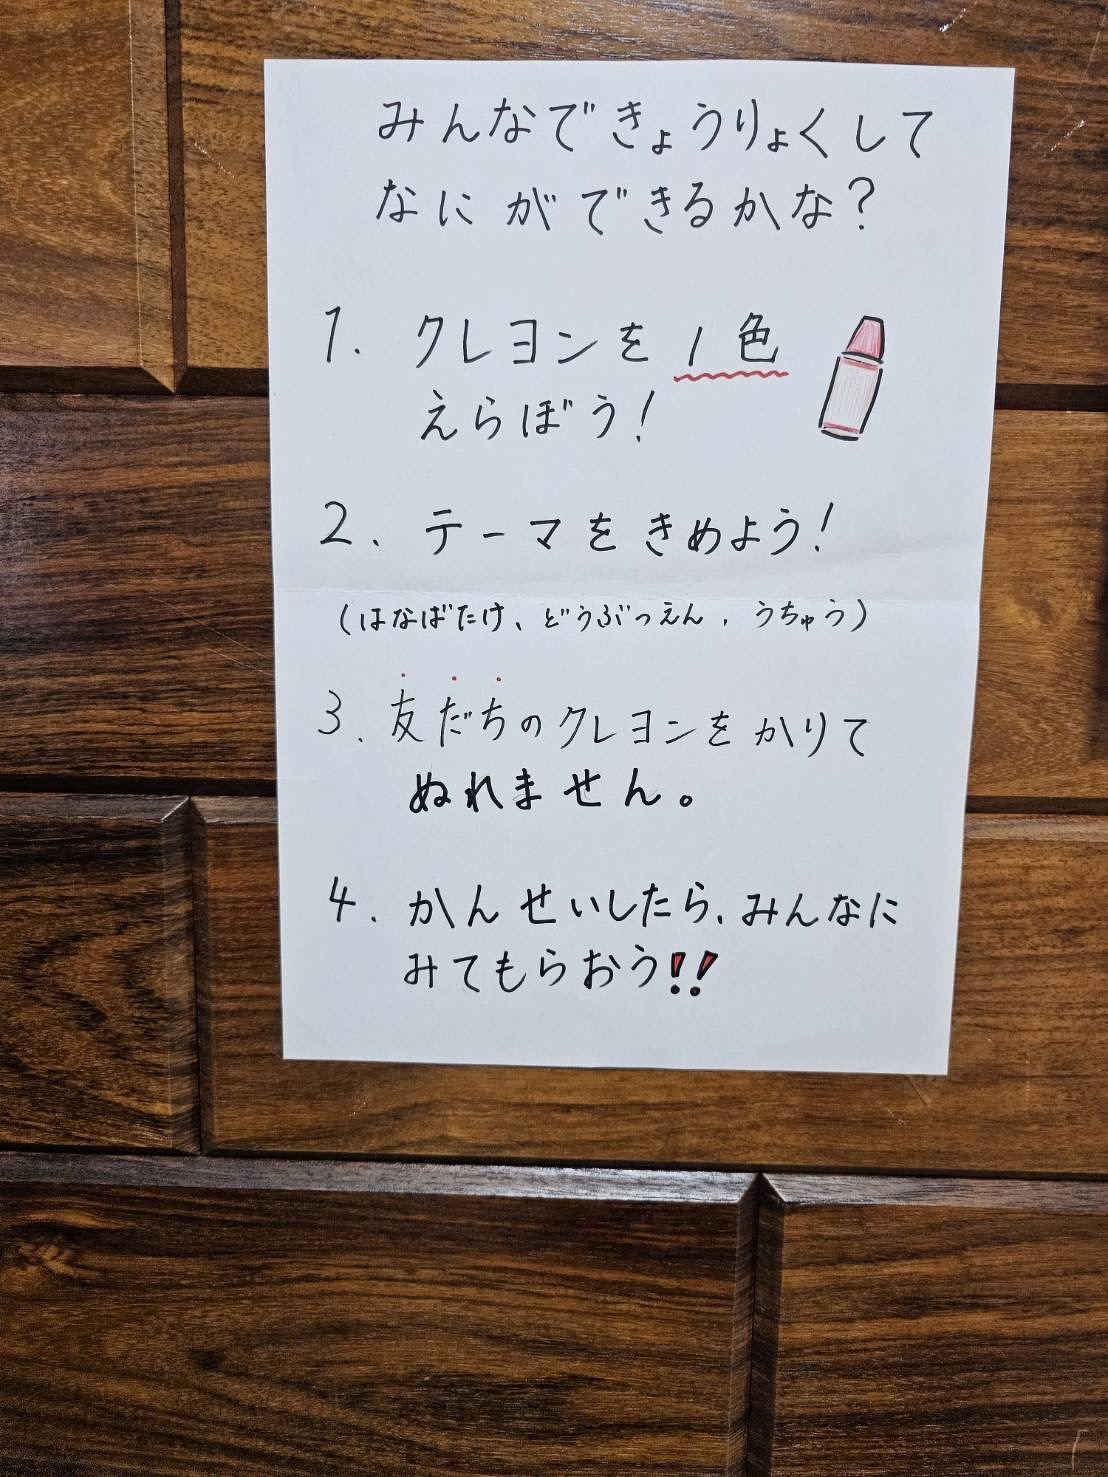 みんなできょうりょくして
なにができるかな?
1. クレヨンを1色
えらぼう!
2. テーマをきめよう!
(はなばたけ、どうぶつえん、うちゅう)
3. 友だちのクレヨンをかりて
ぬれません。
4. かんせいしたら、みんなに
みてもらおう!!